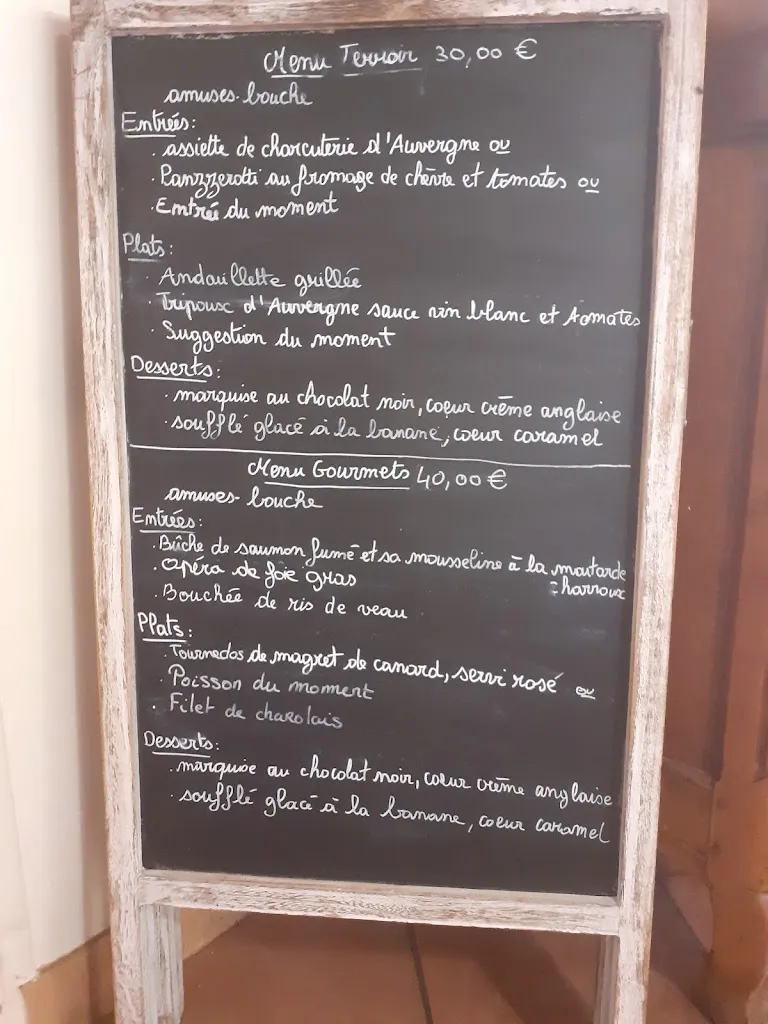 Menu Terroir 30,00 €
amuses-bouche
Entrées:
. assiette de charcuterie d'Auvergne ou
. Panzzerotti au fromage de chèvre et tomates ou
. Entrée du moment
Plats:
. Andouillette grillée
. Tripoux d'Auvergne sauce vin blanc et tomates
. Suggestion du moment
Desserts:
. marquise au chocolat noir, coeur crème anglaise
. soufflé glacé à la banane, coeur caramel
Menu Gourmets 40,00 €
amuses-bouche
Entrées:
. Bûche de saumon fumé et sa mousseline à la moutarde
charroux
. opéra de foie gras
. Bouchée de ris de veau
Plats:
. Tournedos de magret de canard, servi rosé ou
. Poisson du moment
. Filet de charolais
Desserts:
. marquise au chocolat noir, coeur crème anglaise
. soufflé glacé à la banane, coeur caramel